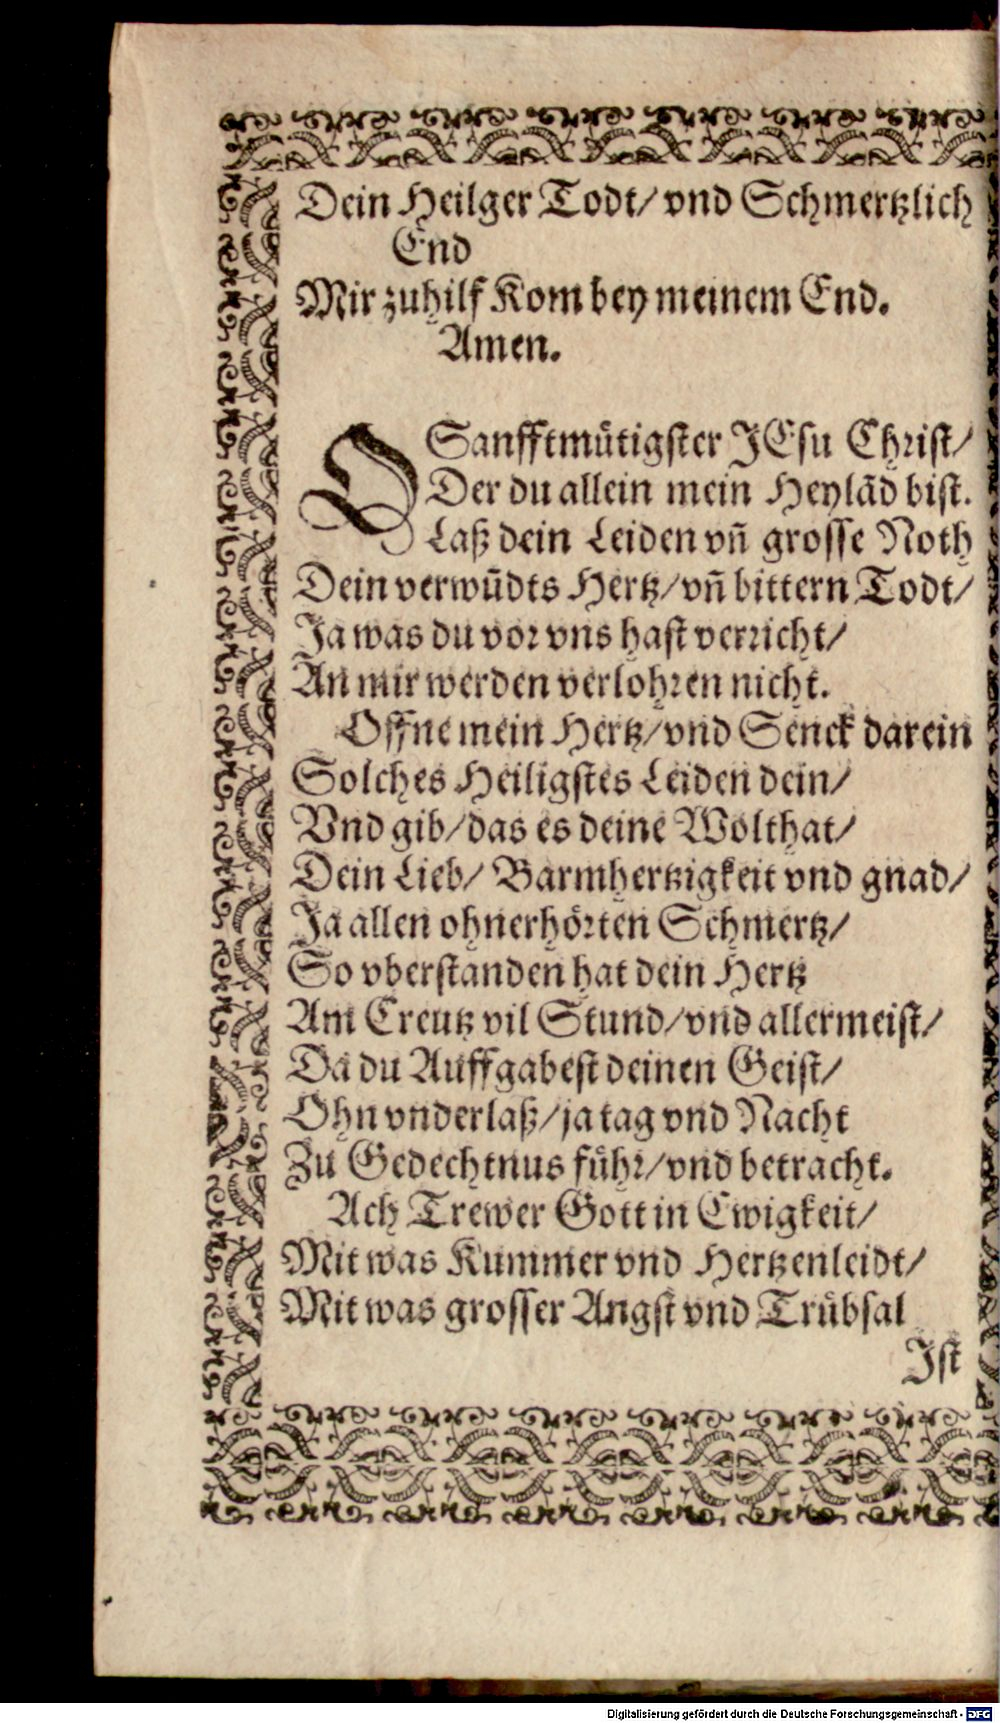 Dein Heilger Todt/ vnd Schmertzlich
End
Mir zuhilf Kom bey meinem End.
Amen.
O Sanfftmütigster JEsu Christ/
Der du allein mein Heylãd bist.
Laß dein Leiden vñ grosse Noth
Dein verwũdts Hertz/ vñ bittern Todt/
Ja was du vor vns hast verricht/
An mir werden verlohren nicht.
Offne mein Hertz/ vnd Senck darein
Solches Heiligstes Leiden dein/
Vnd gib/ das es deine Wolthat/
Dein Lieb/ Barmhertzigkeit vnd gnad/
Ja allen ohnerhörten Schmertz/
So vberstanden hat dein Hertz
Am Creutz vil Stund/ vnd allermeist/
Da du Auffgabest deinen Geist/
Ohn vnderlaß/ ja tag vnd Nacht
Zu Gedechtnus führ/ vnd betracht.
Ach Trewer Gott in Ewigkeit/
Mit was Kummer vnd Hertzenleidt/
Mit was grosser Angst vnd Trübsal
Ist
Digitalisierung gefördert durch die Deutsche Forschungsgemeinschaft - DFG